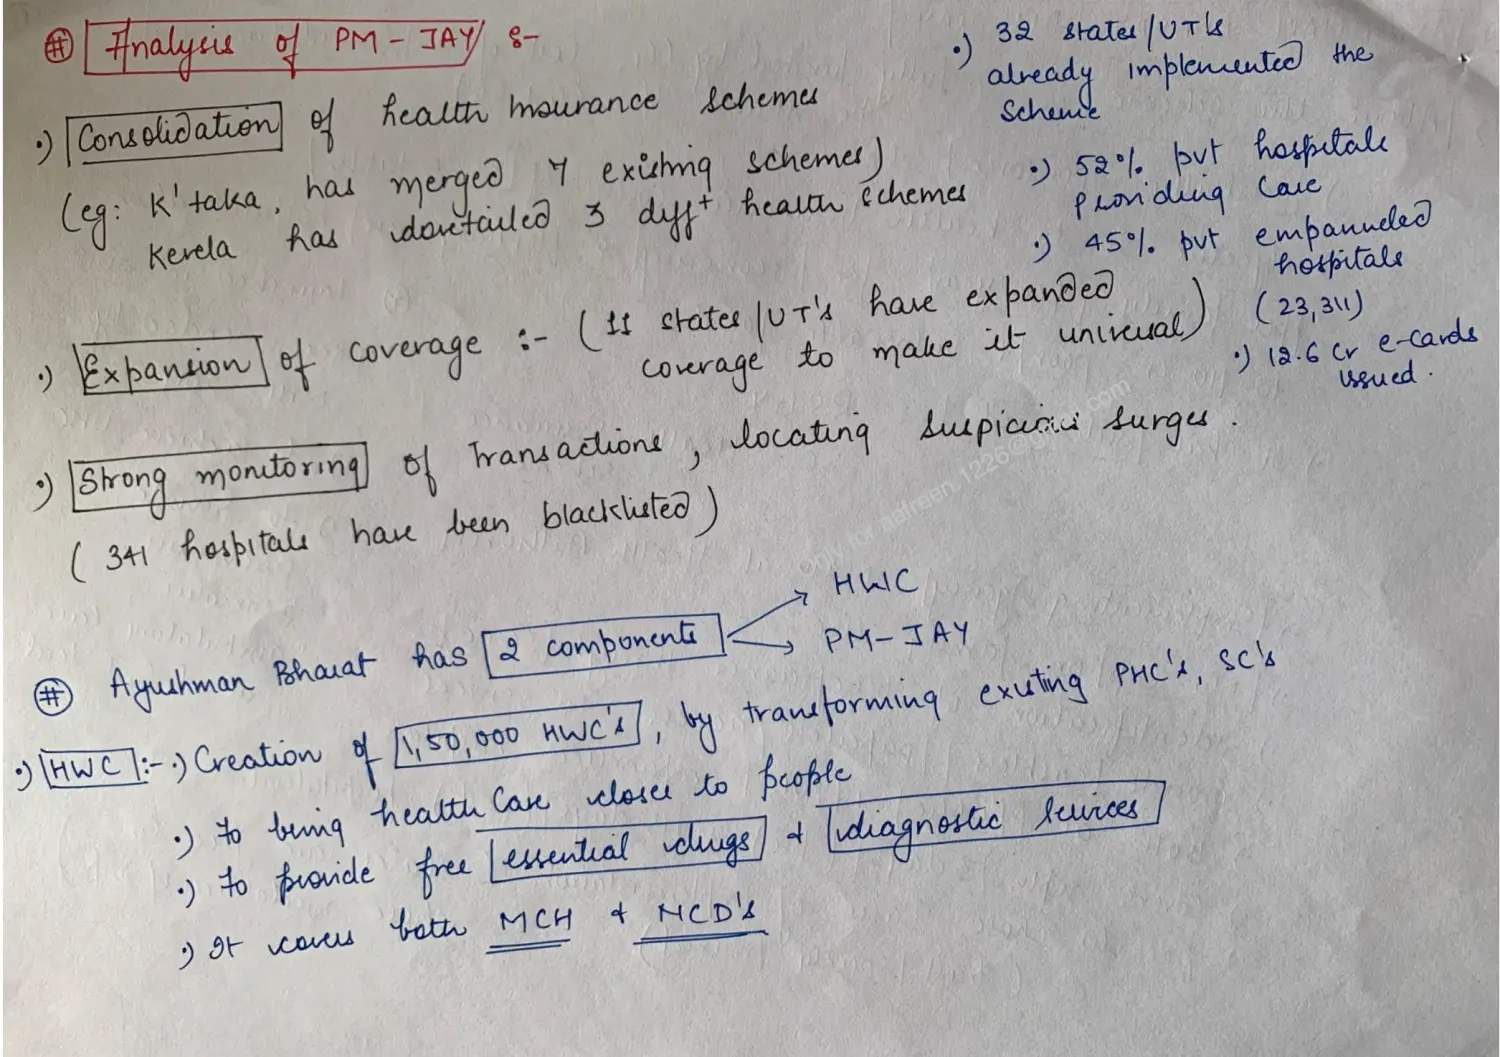 # Analysis of PM-JAY :-
•) Consolidation of health insurance schemes
(eg: K'taka, has merged 7 existing schemes)
Kerela has dovetailed 3 diff+ health schemes
•) Expansion of coverage :- (11 states/UT's have expanded
coverage to make it universal)
•) Strong monitoring of transactions, locating suspicious surges.
(341 hospitals have been blacklisted)
•) 32 states/UT's
already implemented the
Scheme
•) 52% pvt hospitals
providing care
•) 45% pvt empanneled
hospitals
(23,311)
•) 12.6 Cr e-cards
issued.
# Ayushman Bharat has 2 components
HWC
PM-JAY
•) HWC :- •) Creation of 1,50,000 HWC's, by transforming existing PHC's, SC's
•) to bring health Care closer to people
•) to provide free essential drugs & diagnostic services
•) It covers both MCH & NCD's